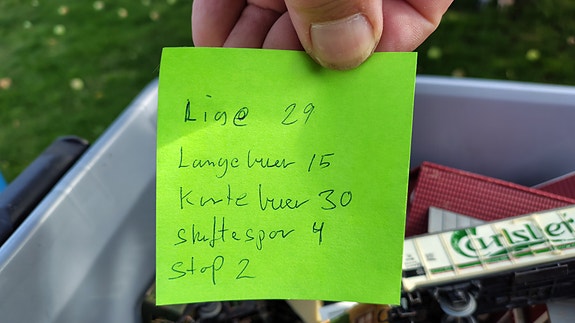 Lige 29
Langebuer 15
Kortebuer 30
Skiftespor 4
Stop 2
Carlsberg